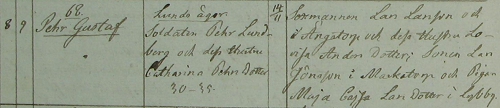 8 9 68. Pehr Gustaf
Lunds ägor.
Soldaten Pehr Lund-
berg och dess hustru
Catharina Pehrs Dotter
30-35.
14/11
Lars Larsson och
i Ångatorp och dess Hustru Lo-
visa Anders Dotter; Sonen Lars
Jönsson i Markatorp och Pigan
Maja Cajsa Lars Dotter i